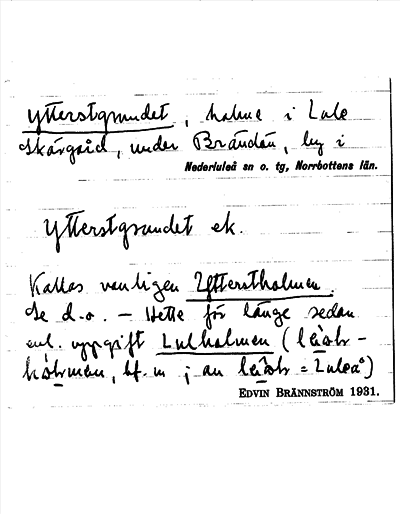 Ytterstgrundet, holme i Lule
skärgård, under Brändön, by i
Nederluleå sn o. tg, Norrbottens län.
Ytterstgrundet ek.
Kallas vanligen Ytterstholmen.
Se d.o. – Hette för länge sedan
enl. uppgift Lulholmen (
bf. m ; av = Luleå)
EDVIN BRÄNNSTRÖM 1931.